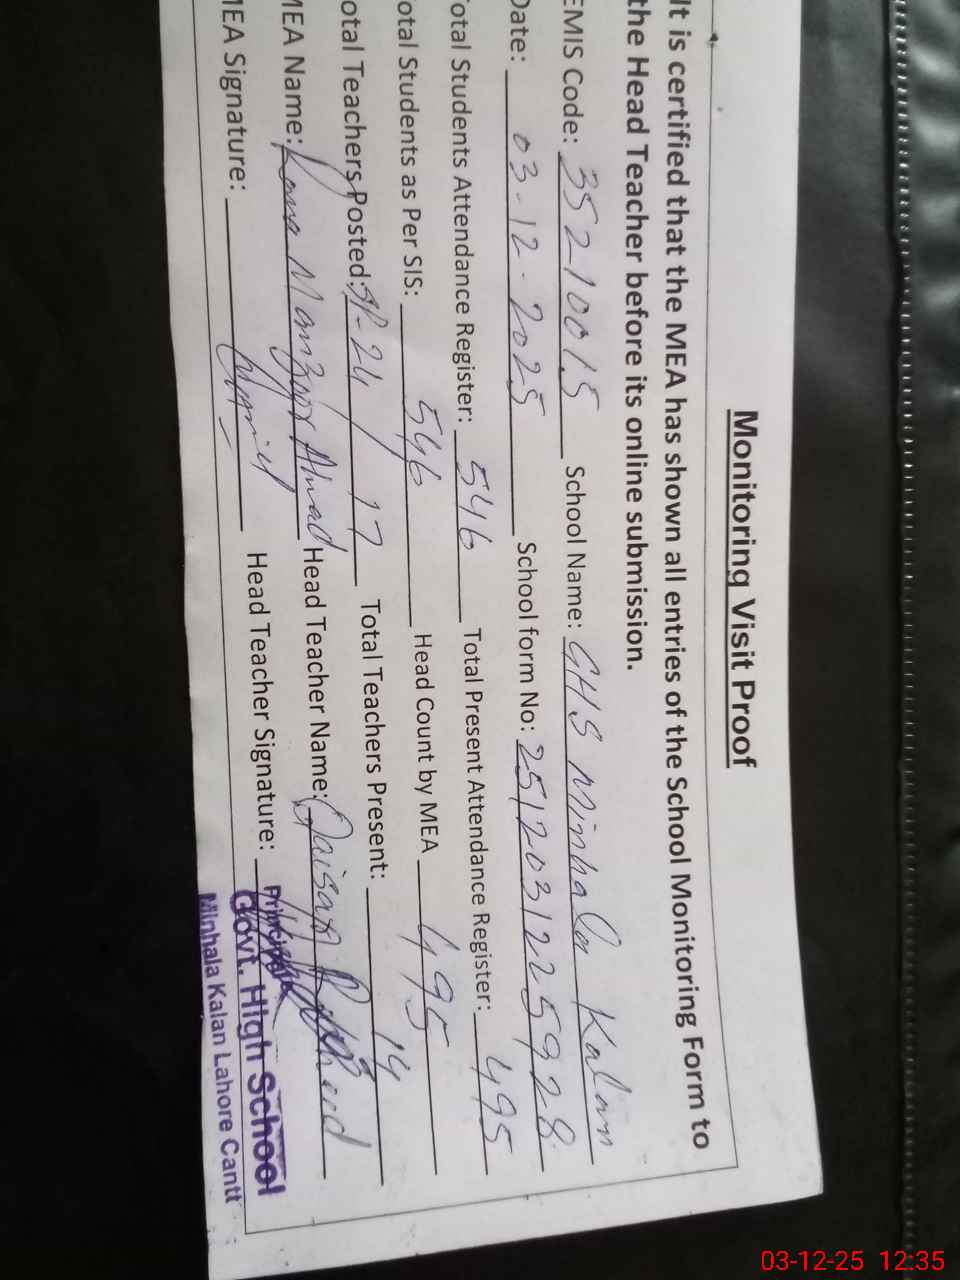 Monitoring Visit Proof
It is certified that the MEA has shown all entries of the School Monitoring Form to
the Head Teacher before its online submission.
EMIS Code: 35210015 School Name: GHS Minhala Kalan
Date: 03-12-2025 School form No: 2512031225928
Total Students Attendance Register: 546 Total Present Attendance Register: 495
Total Students as Per SIS: 546 Head Count by MEA 495
Total Teachers Posted: 24 / 17 Total Teachers Present: 14
MEA Name: Rana Manzoor Ahmad Head Teacher Name: Qaisar Rasheed
MEA Signature: Head Teacher Signature:
Principal
Govt. High School
Minhala Kalan Lahore Cantt
03-12-25 12:35